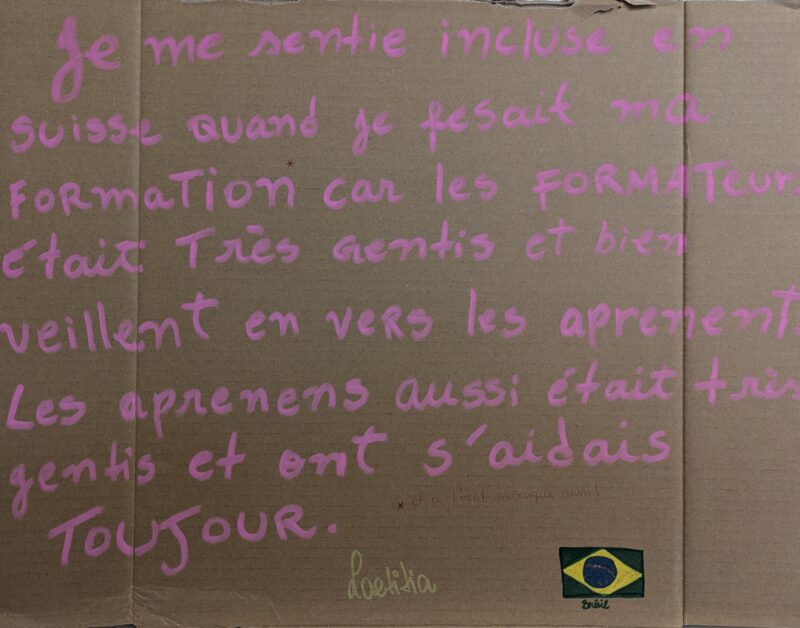 Je me sentie incluse en
suisse quand je fesait ma
FORMATION * car les FORMATEURS
était Très gentis et bien
veillent en vers les aprenents.
Les aprenens aussi était très
gentis et ont s'aidais
TOUJOUR.
* et à l'école mosaïque aussi!
Laetitia
Brésil